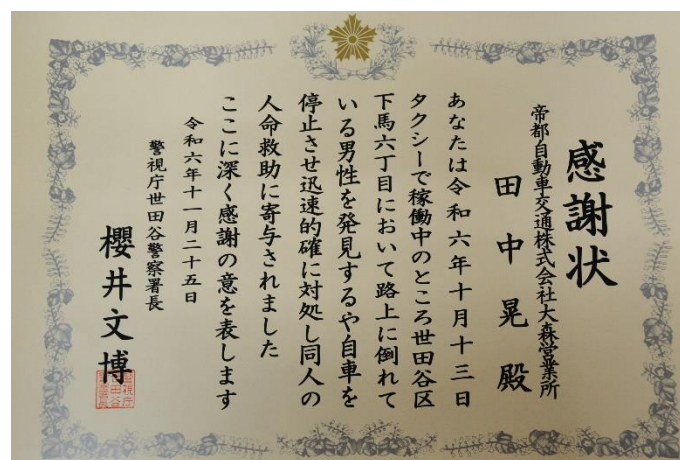 感謝状
帝都自動車交通株式会社大森営業所
田中晃殿
あなたは令和六年十月十三日
タクシーで稼働中のところ世田谷区
下馬六丁目において路上に倒れて
いる男性を発見するや自車を
停止させ迅速的確に対処し同人の
人命救助に寄与されました
ここに深く感謝の意を表します
令和六年十一月二十五日
警視庁世田谷警察署長
櫻井文博